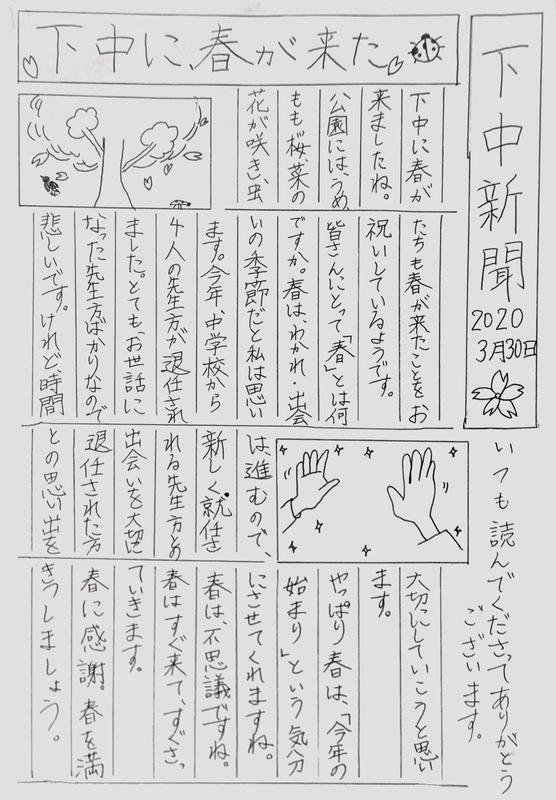 下中新聞
2020
3月30日
下中に、春が来た
下中に春が
来ましたね。
公園には、うめ
もも桜、菜の
花が咲き、虫
たちも春が来たことをお
祝いしているようです。
皆さんにとって「春」とは何
ですか。春は、わかれ・出会
いの季節だと私は思い
ます。今年、中学校から
4人の先生方が退任され
ました。とても、お世話に
なった先生方ばかりなので
悲しいです。けれど、時間
は進むので、
新しく就任さ
れる先生方との
出会いを大切に
退任された方
との思い出を
大切にしていこうと思い
ます。
やっぱり春は、「今年の
始まり」という気分
にさせてくれますね。
春は、不思議ですね。
春はすぐ来て、すぐさっ
ていきます。
春に感謝。春を満
きつしましょう。
いつも読んでくださってありがとう
ございます。